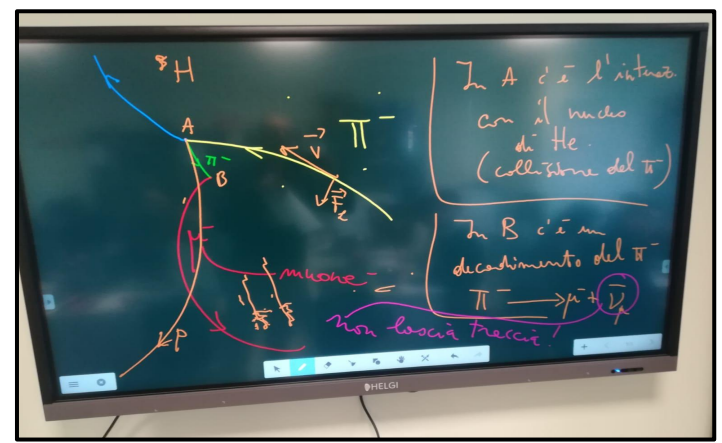 H
A
π⁻
π⁻
v
B
F
In A c'è l'interaz.
con il nucleo
di He.
(collisione del π⁻)
In B c'è un
decadimento del π⁻
π⁻ → μ⁻ + ν̄μ
μ⁻
muone
non lascia traccia!
P
HELGI